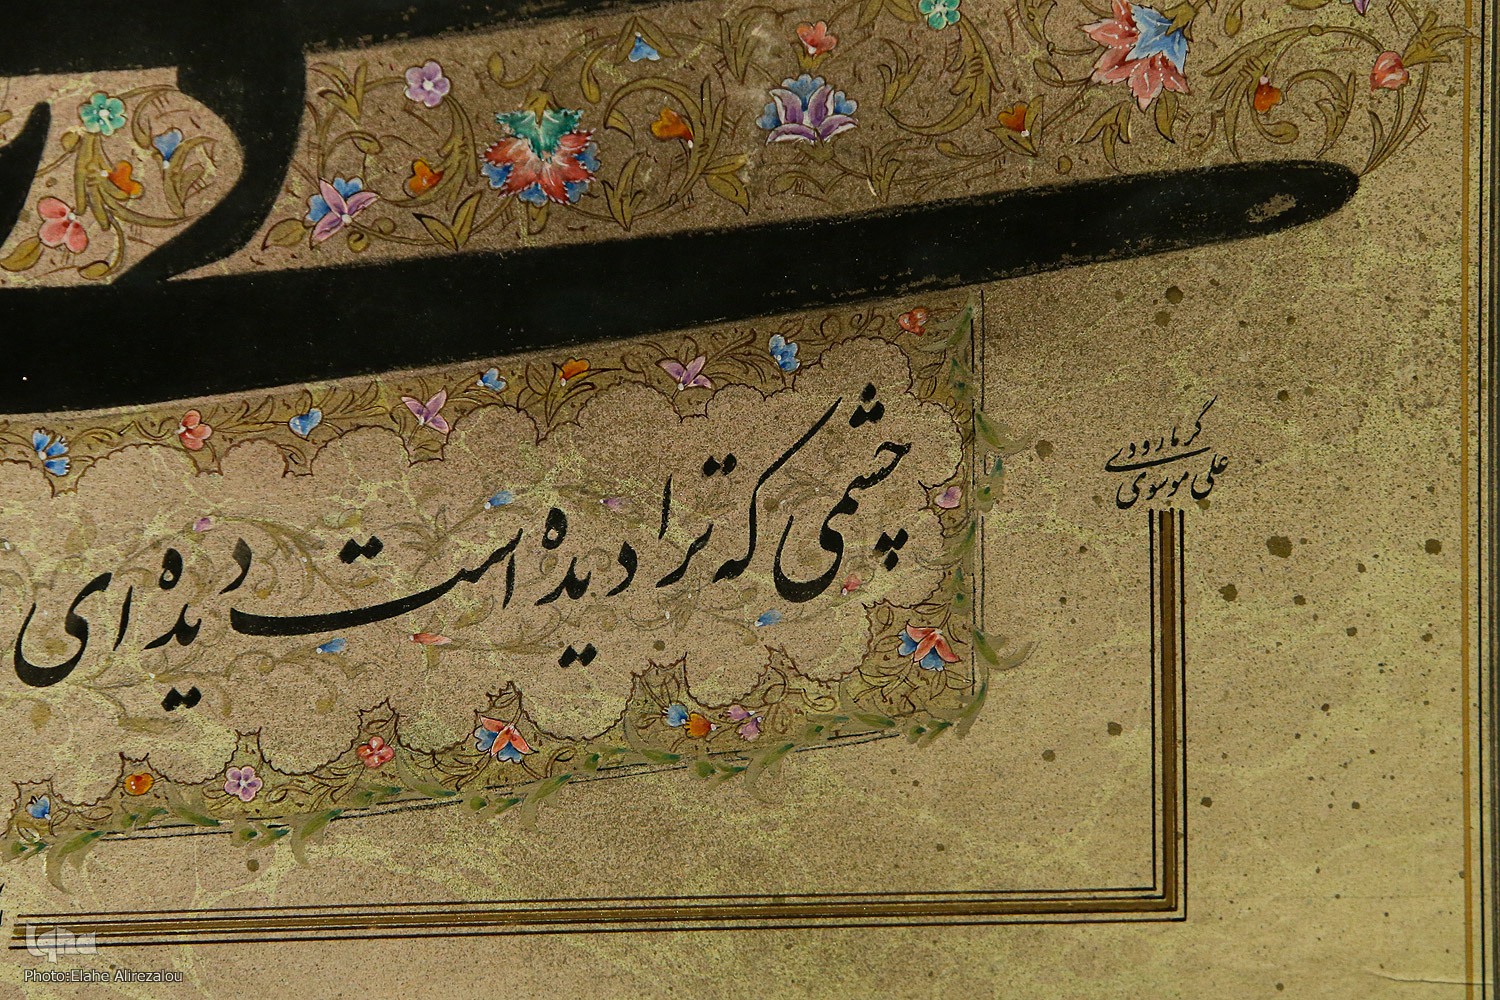 چشمی که ترا دیده است دیده ای
علی موسوی
گرمارودی
Iqna
Photo:Elahe Alirezalou